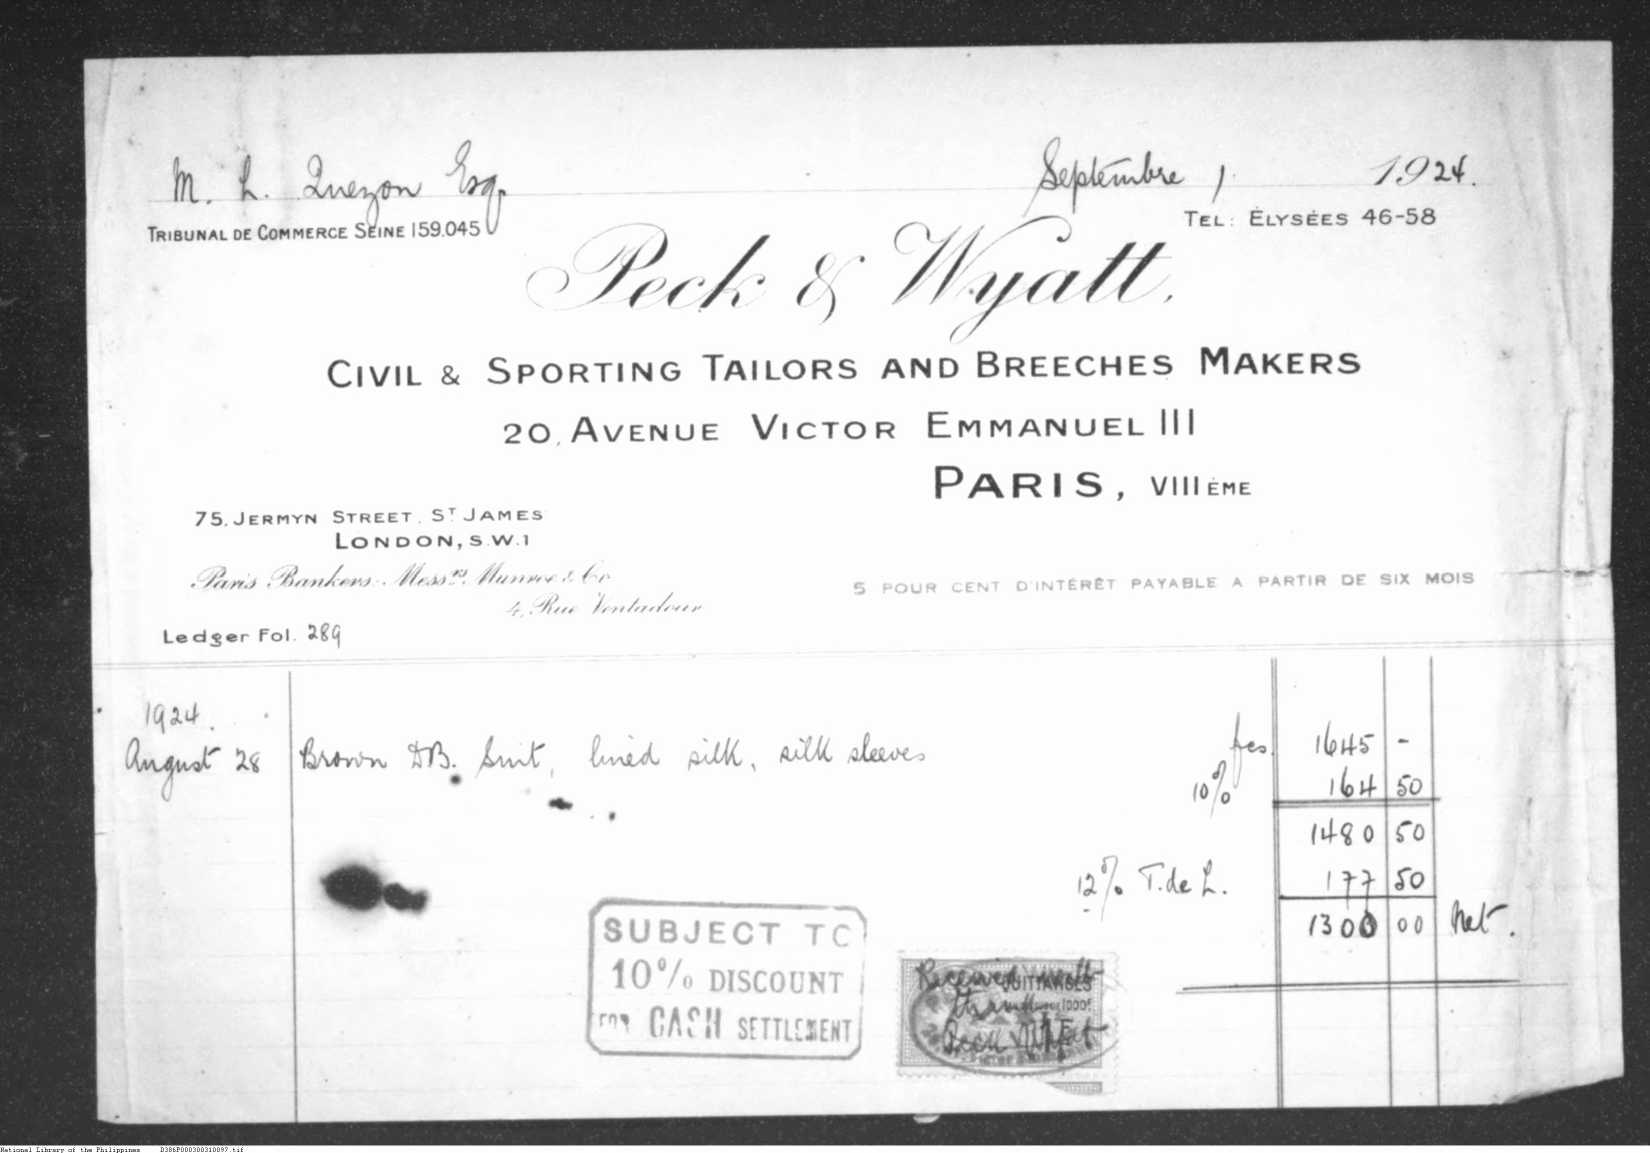 M. L. Quezon Esq.
Septembre 1 1924.
TRIBUNAL DE COMMERCE SEINE 159.045
TEL: ÉLYSÉES 46-58
Peck & Wyatt.
CIVIL & SPORTING TAILORS AND BREECHES MAKERS
20, AVENUE VICTOR EMMANUEL III
PARIS, VIIIÈME
75, JERMYN STREET, ST JAMES
LONDON, S.W.1
Paris Bankers: Messrs Munroe & Co
4, Rue Ventadour
5 POUR CENT D'INTÉRÊT PAYABLE A PARTIR DE SIX MOIS
Ledger Fol. 289
1924.
August 28 Brown DB. Suit, lined silk, silk sleeves fcs. 1645 -
10% 164 50
1480 50
12% T. de L. 177 50
1300 00 Net.
SUBJECT TO
10% DISCOUNT
FOR CASH SETTLEMENT
Received with
QUITTANCES
thanks
1000f
Peck & Wyatt
National Library of the Philippines D386P000300310097.tif